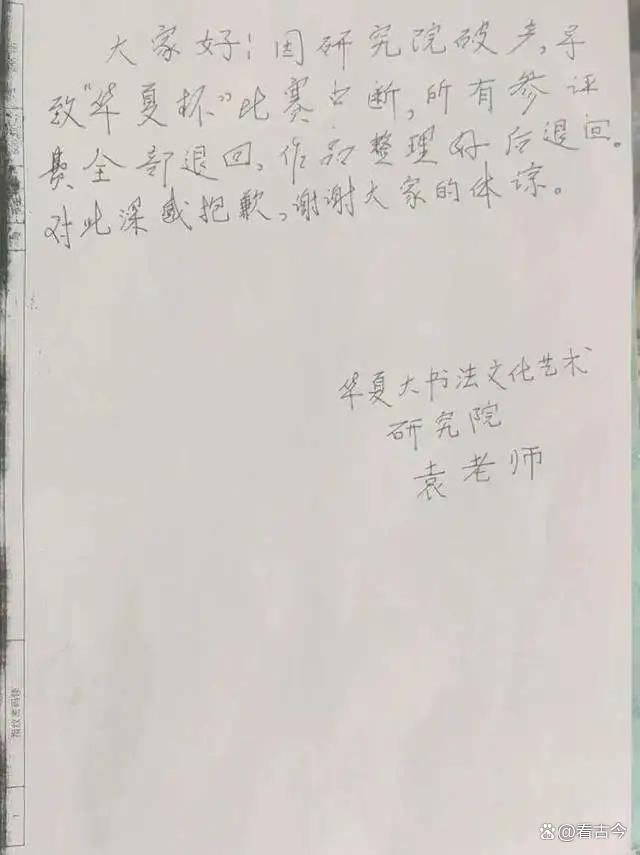 大家好!因研究院破产,导
致"华夏杯"比赛中断,所有参评
费全部退回,作品整理好后退回。
对此深感抱歉,谢谢大家的体谅。
华夏大书法文化艺术
研究院
袁老师
指纹密码锁
1
@看古今